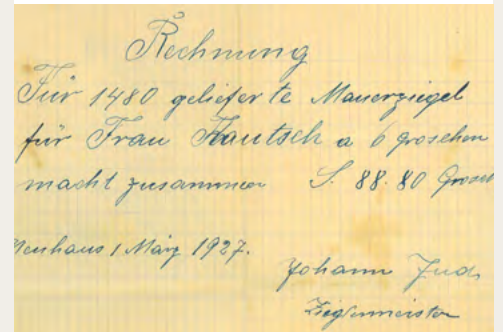 Rechnung
Für 1480 gelieferte Mauerziegel
für Frau Kautsch a 6 groschen
macht zusammen S. 88.80 Grosch
Neuhaus 1 März 1927.
Johann Jud
Ziglmeister